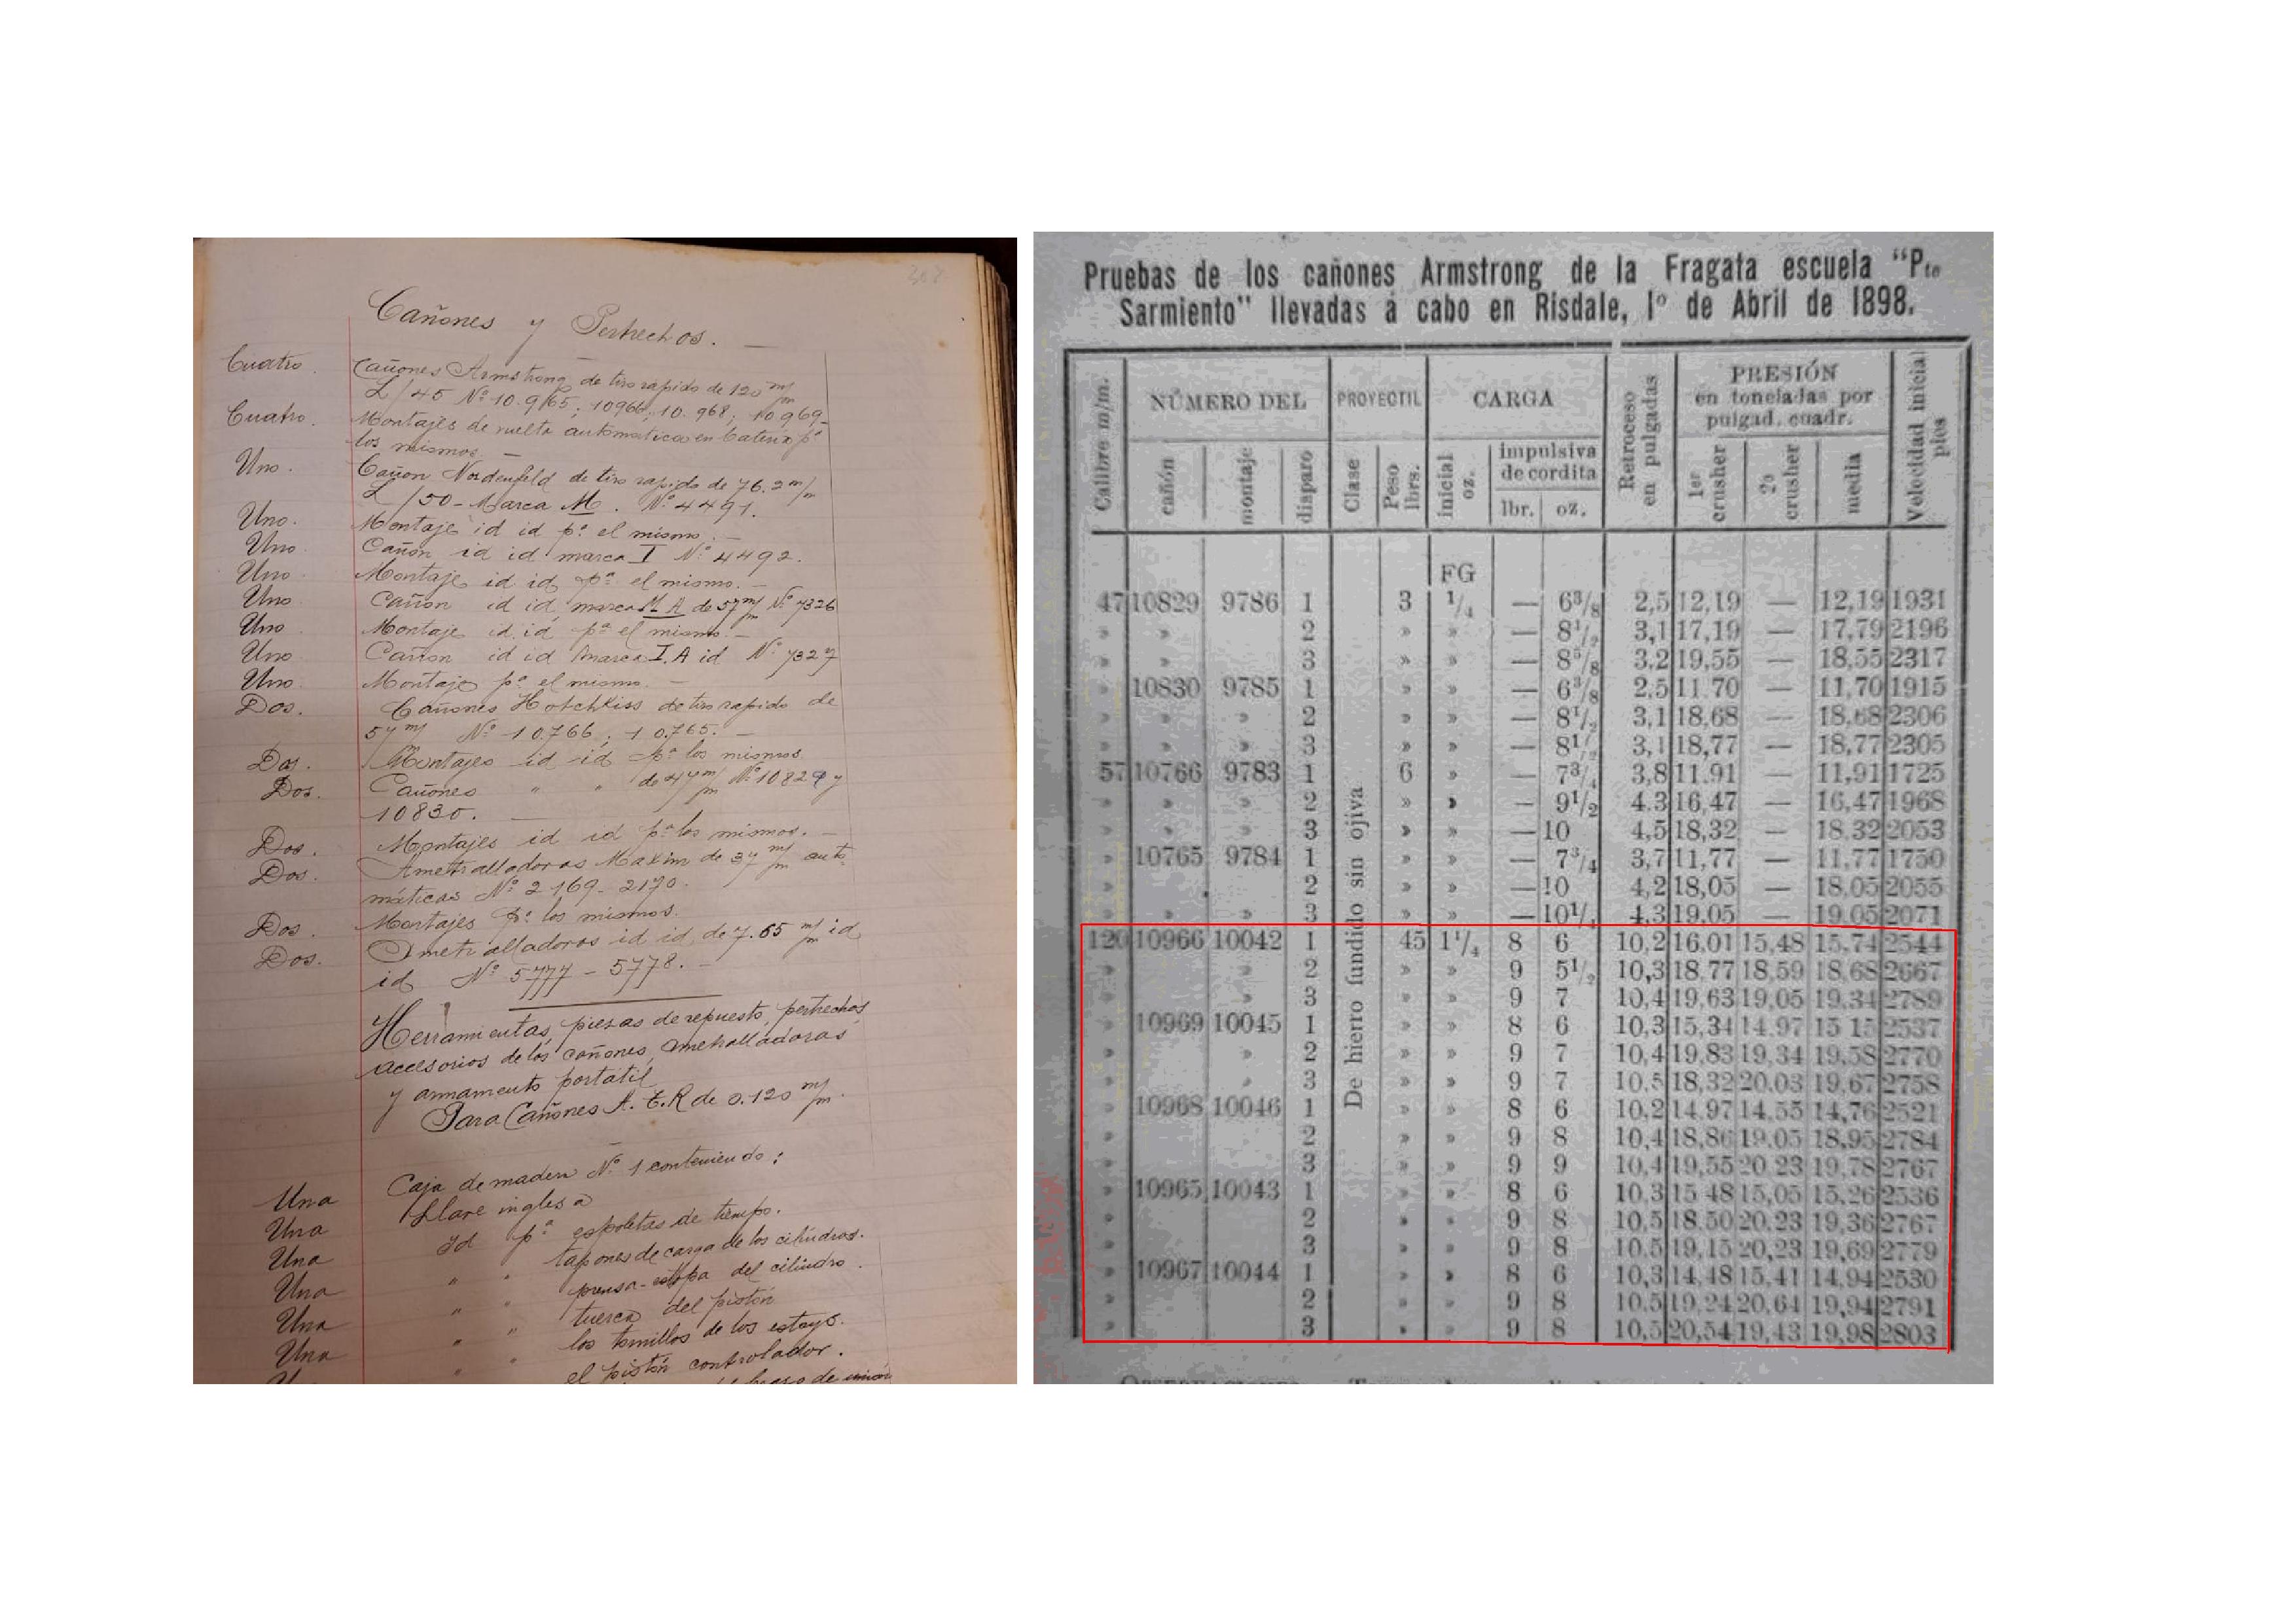 Cañones y Pertrechos.
Cuatro. Cañones Armstrong de tiro rapido de 120 m/m
L/45 Nº 10.965; 10966; 10.968; 10969.
Cuatro. Montajes de vuelta automatica en bateria pª
los mismos. —
Uno. Cañon Nordenfeld de tiro rapido de 76.2 m/m
L/50 - Marca M. Nº 4491.
Uno. Montaje id id pª el mismo. —
Uno Cañon id id marca I Nº 4492.
Uno. Montaje id id pª el mismo. —
Uno. Cañon id id marca M A de 57 m/m Nº 7326
Uno. Montaje id id pª el mismo. —
Uno Cañon id id marca I.A id Nº 7327
Uno. Montaje pª el mismo. —
Dos. Cañones Hotchkiss de tiro rapido de
57 m/m Nº 10.766; 10.765. —
Dos. Montajes id id pª los mismos
Dos. Cañones " " de 47 m/m Nº 10829 y
10830. —
Dos. Montajes id id pª los mismos. —
Dos. Ametralladoras Maxim de 37 m/m auto-
máticas Nº 2169 - 2170.
Dos. Montajes pª los mismos.
Dos. Ametralladoras id id de 7.65 m/m id
id Nº 5777 - 5778. —
Herramientas, piezas de repuesto, pertrechos
accesorios de los cañones, ametralladoras
y armamento portátil
Para Cañones A. T. R de 0.120 m/m.
Caja de madera Nº 1 conteniendo:
Una Llave inglesa
Una Id pª espoletas de tiempo.
Una " " tapones de carga de los cilindros.
Una " " prensa-estopa del cilindro.
Una " " tuerca del pistón
Una " " los tornillos de los estays.
Una " " el pistón controlador.
Pruebas de los cañones Armstrong de la Fragata escuela "Pte
Sarmiento" llevadas á cabo en Risdale, 1º de Abril de 1898.
Calibre m/m. NÚMERO DEL PROYECTIL CARGA Retroceso en pulgadas PRESIÓN en toneladas por pulgad. cuadr. Velocidad inicial pies
cañón montaje disparo Clase Peso lbrs. inicial oz. impulsiva de cordita 1er crusher 2º crusher media
lbr. oz.
De hierro fundido sin ojiva
FG
47 10829 9786 1 3 1/4 — 6 3/8 2,5 12,19 — 12,19 1931
» » 2 » » — 8 1/2 3,1 17,19 — 17,79 2196
» 3 » » — 8 5/8 3.2 19,55 — 18,55 2317
» 10830 9785 1 » » — 6 3/8 2,5 11.70 — 11,70 1915
» » » 2 » » — 8 1/2 3,1 18,68 — 18,68 2306
» » » 3 » » — 8 1/2 3,1 18,77 — 18,77 2305
57 10766 9783 1 6 » — 7 3/4 3,8 11.91 — 11,91 1725
» » » 2 » » — 9 1/2 4.3 16,47 — 16,47 1968
» » » 3 » » — 10 4,5 18,32 — 18.32 2053
» 10765 9784 1 » » — 7 3/4 3,7 11,77 — 11,77 1750
» 2 » » — 10 4,2 18,05 — 18,05 2055
» » » 3 » » — 10 1/4 4.3 19.05 — 19.05 2071
120 10966 10042 1 45 1 1/4 8 6 10,2 16.01 15,48 15,74 2544
» » » 2 » » 9 5 1/2 10,3 18.77 18,59 18,68 2667
» » 3 » » 9 7 10,4 19,63 19,05 19,34 2789
» 10969 10045 1 » » 8 6 10,3 15,34 14.97 15 15 2537
» » 2 » » 9 7 10,4 19,83 19,34 19,58 2770
» » 3 » » 9 7 10.5 18,32 20.03 19,67 2758
» 10968 10046 1 » » 8 6 10,2 14.97 14,55 14,76 2521
» 2 » » 9 8 10,4 18,86 19,05 18,95 2784
» 3 » » 9 9 10,4 19,55 20 23 19,78 2767
» 10965 10043 1 » » 8 6 10.3 15 48 15,05 15.26 2536
» 2 » » 9 8 10,5 18.50 20,23 19,36 2767
» 3 » » 9 8 10.5 19,15 20,23 19,69 2779
» 10967 10044 1 » » 8 6 10,3 14,48 15,41 14,94 2530
» 2 » » 9 8 10.5 19,24 20,64 19,94 2791
» 3 » » 9 8 10,5 20,54 19,43 19,98 2803